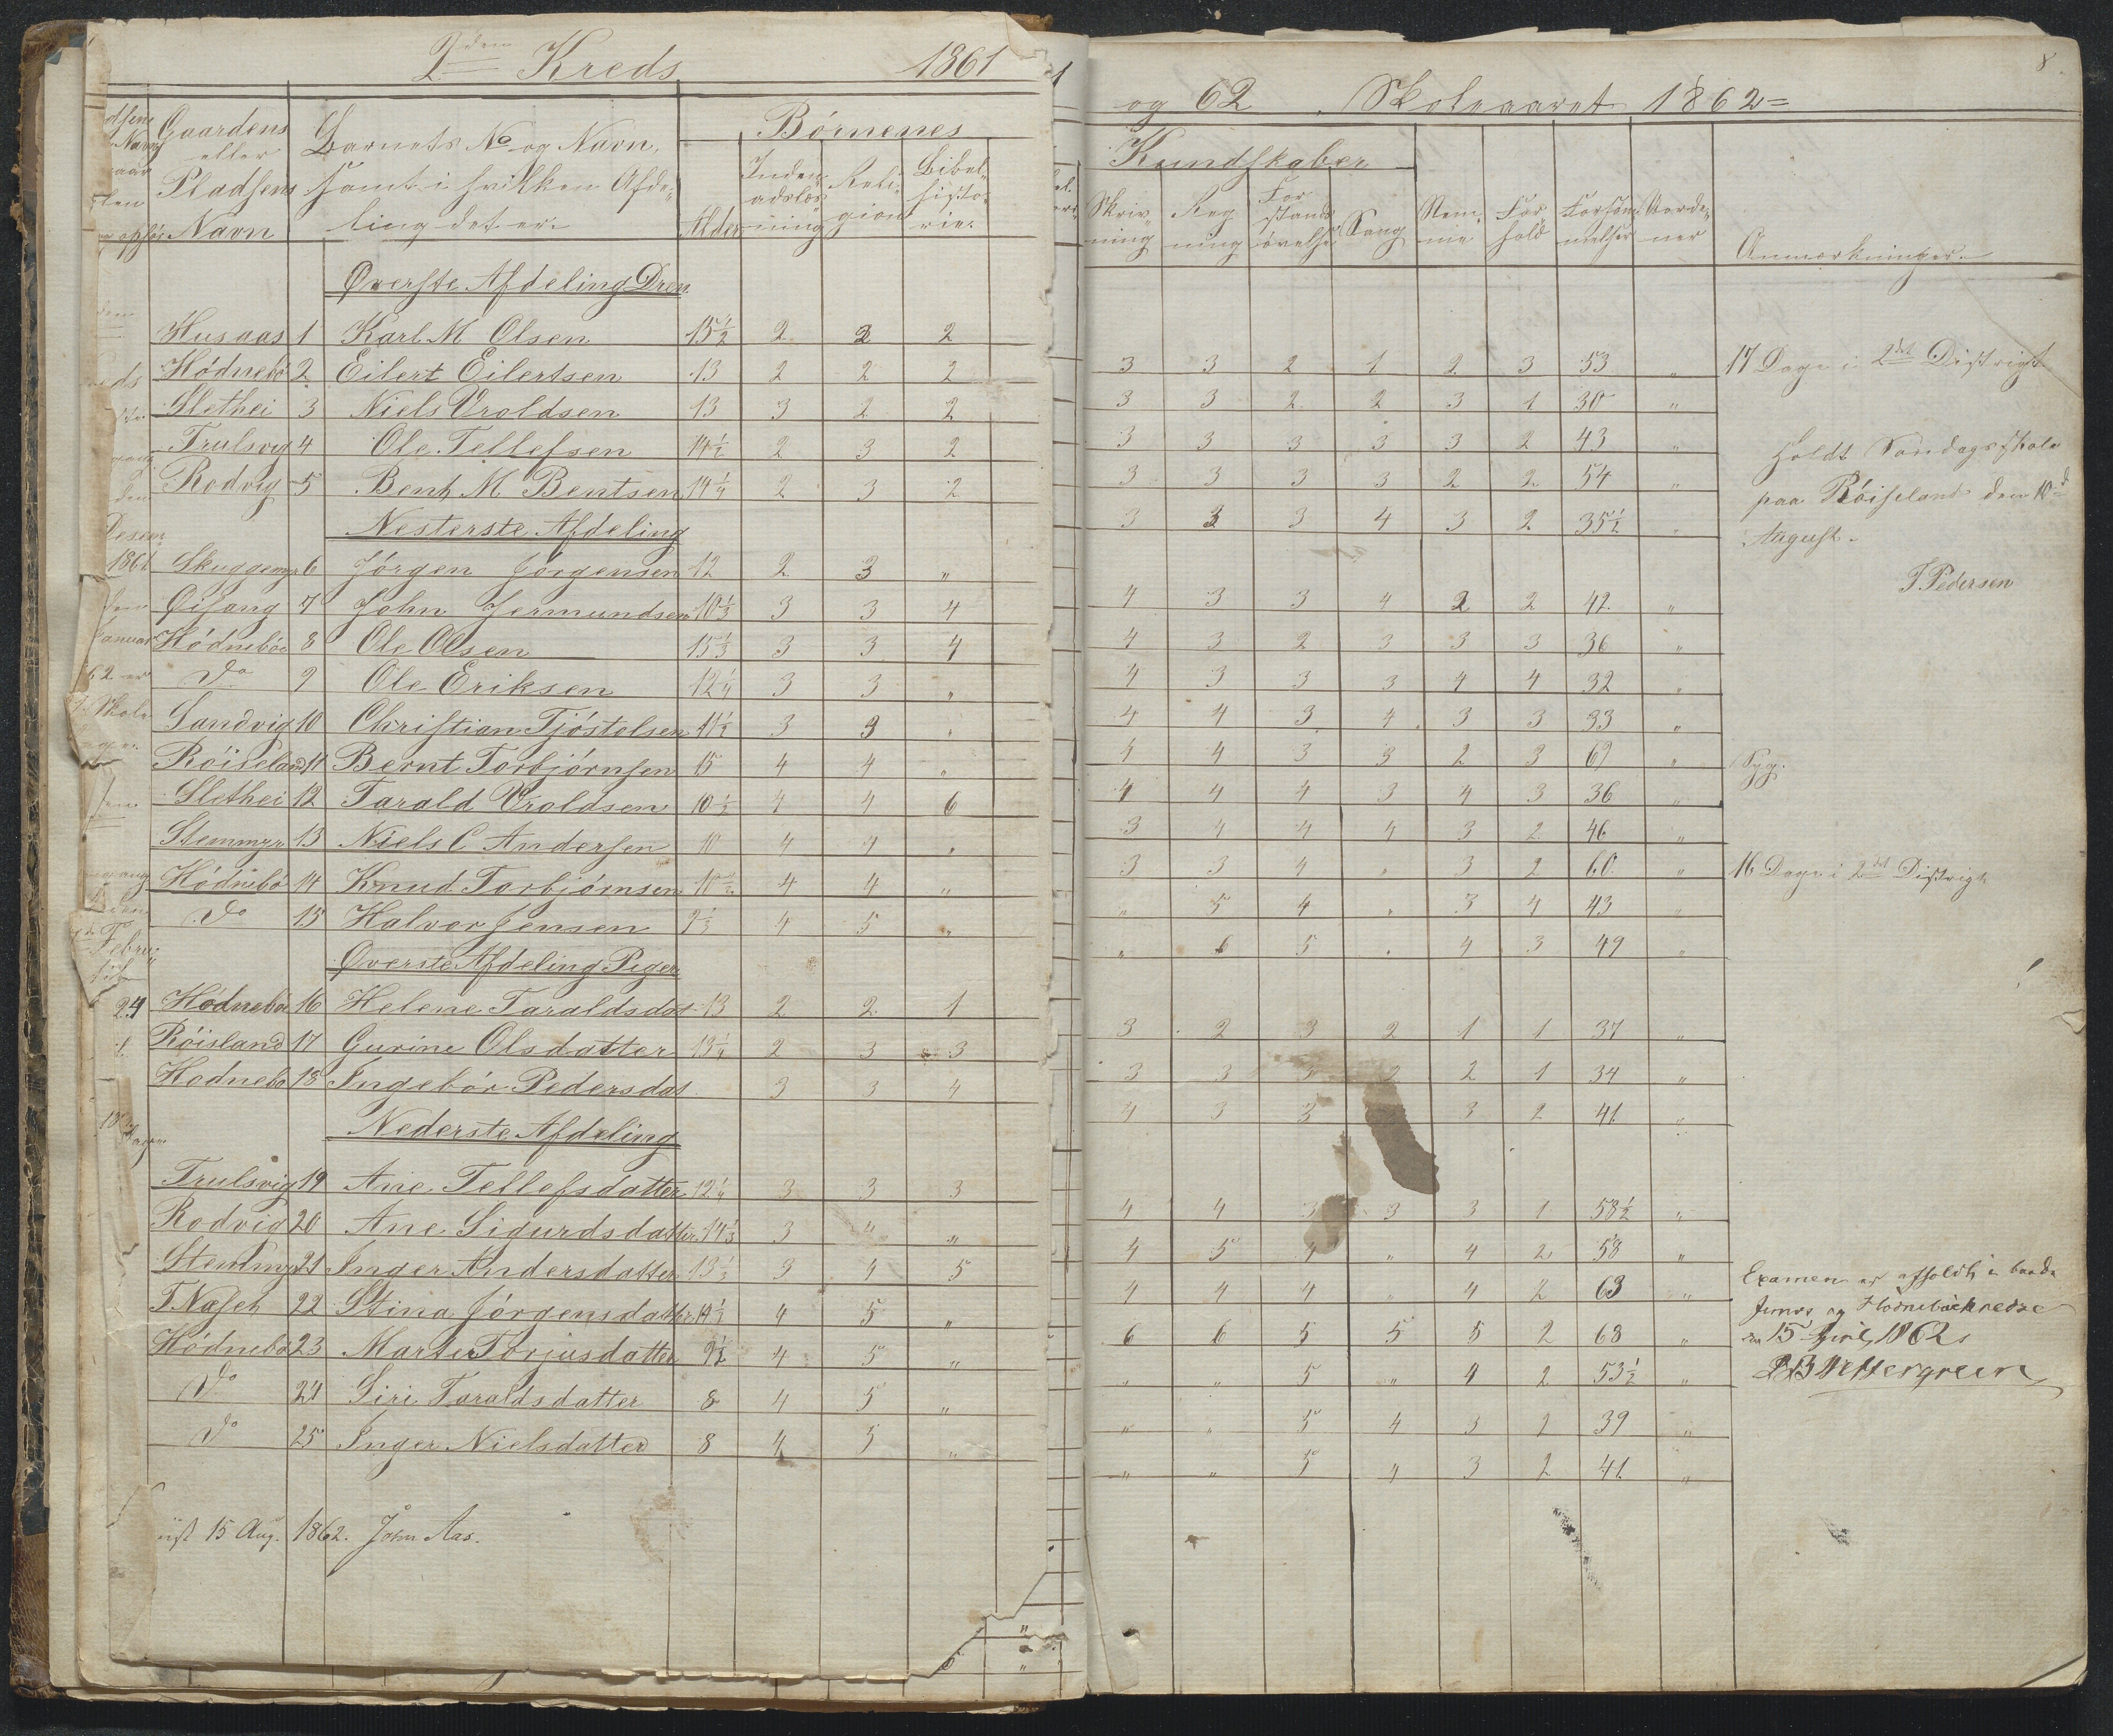 2den Kreds 1861
Gaardens eller Pladsens Navn
Barnets No og Navn, samt i hvilken Afdeling det er.
Alder
Börnenes
Indenadslæsning
Religion
Bibelhistorie.
Øverste Afdeling Dren
Husaas 1 Karl M Olsen 15½ 2 2 2
Hödnebö 2 Eilert Eilertsen 13 2 2 2
Slethei 3 Niels Vroldsen 13 3 2 2
Trulsvig 4 Ole Tellefsen 14½ 2 3 2
Rodvig 5 Bent M Bentsen 14¼ 2 3 2
Nesterste Afdeling
Skuggemyr 6 Jörgen Jörgensen 12 2 3 "
Øisang 7 John Jermundsen 10⅓ 3 3 4
Hödneböe 8 Ole Olsen 15⅓ 3 3 4
Do 9 Ole Eriksen 12¼ 3 3 "
Sandvig 10 Christian Tjöstelsen 11½ 3 3 "
Röiseland 11 Bernt Torbjörnsen 15 4 4 "
Slethei 12 Tarald Vroldsen 10½ 4 4 6
Stemmyr 13 Niels C Andersen 10 4 4 "
Hödnebö 14 Knud Torbjörnsen 10½ 4 4 "
Do 15 Halvor Jensen 9⅓ 4 5 "
Øverste Afdeling Piger
Hödneböe 16 Helene Taraldsdat 13 2 2 1
Röisland 17 Gurine Olsdatter 13¼ 2 3 3
Hodnebö 18 Ingebör Pedersdat 3 3 4
Nederste Afdeling
Trulsvig 19 Ane Tellefsdatter 12¼ 3 3 3
Rodvig 20 Ane Sigurdsdatter 14⅓ 3 4 "
Stemmyr 21 Inger Andersdatter 13⅓ 3 4 5
T Næset 22 Stina Jörgensdatter 14½ 4 5 "
Hödnebö 23 Marte Torjusdatter 9½ 4 5 "
Do 24 Siri Taraldsdatter 8 4 5 "
Do 25 Inger Nielsdatter 8 4 5 "
15 Aug. 1862. John Aas.
8.
og 62 Skoleaaret 1862=
Kundskaber
Skrivning
Regning
Forstandsövelse
Sang
Nemme
Forhold
Forsömmelser
Anmærkninger.
3 3 2 1 2 3 53 " 17 Dage i 2det Distrigt
3 3 2 2 3 1 30 "
3 3 3 3 3 2 43 "
Holdt Söndagsskole
3 3 3 3 2 2 54 "
paa Röiseland den 10d
3 3 3 4 3 2 35½ "
August.
T. Pedersen
4 3 3 4 2 2 42 "
4 3 2 3 3 3 36 "
4 3 3 3 4 4 32 "
4 4 3 4 3 3 33 "
4 4 3 3 2 3 69 " Syg.
4 4 4 3 4 3 36 "
3 4 4 4 3 2 46 "
3 3 4 " 3 2 60 " 16 Dage i 2det Distrigt
" 5 4 " 3 4 43 "
" 6 5 " 4 3 49 "
3 2 3 2 1 1 37 "
3 3 3 2 2 1 34 "
4 3 3 3 2 41 "
4 4 3 3 3 1 58½ "
4 5 4 " 4 2 58 "
4 4 4 " 4 2 63 "
6 6 5 5 5 2 68 "
" " 5 " 4 2 53½ "
" " 5 4 3 2 39 "
" " 5 4 3 2 41 "
Examen er afholdt i
og Hodneböekredse
15 April 1862